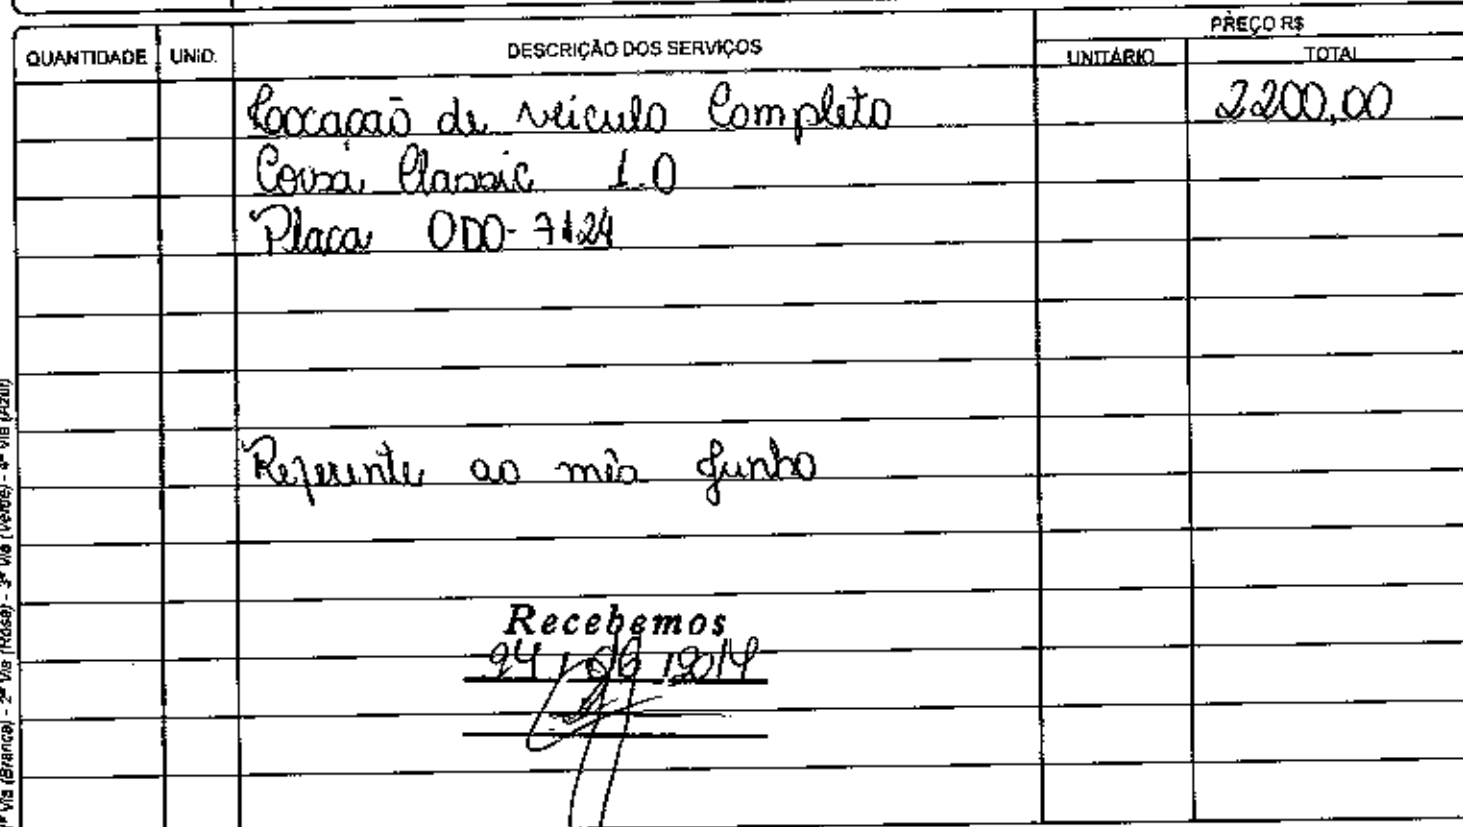 PREÇO R$
QUANTIDADE UNID. DESCRIÇÃO DOS SERVIÇOS UNITÁRIO TOTAL
Locação de veiculo Completo 2200,00
Corsa Classic 1.0
Placa ODO-7124
Referente ao mês Junho
Recebemos
24/06/2014
1ª Via (Branca) - 2ª Via (Rosa) - 3ª Via (Verde) - 4ª Via (Azul)